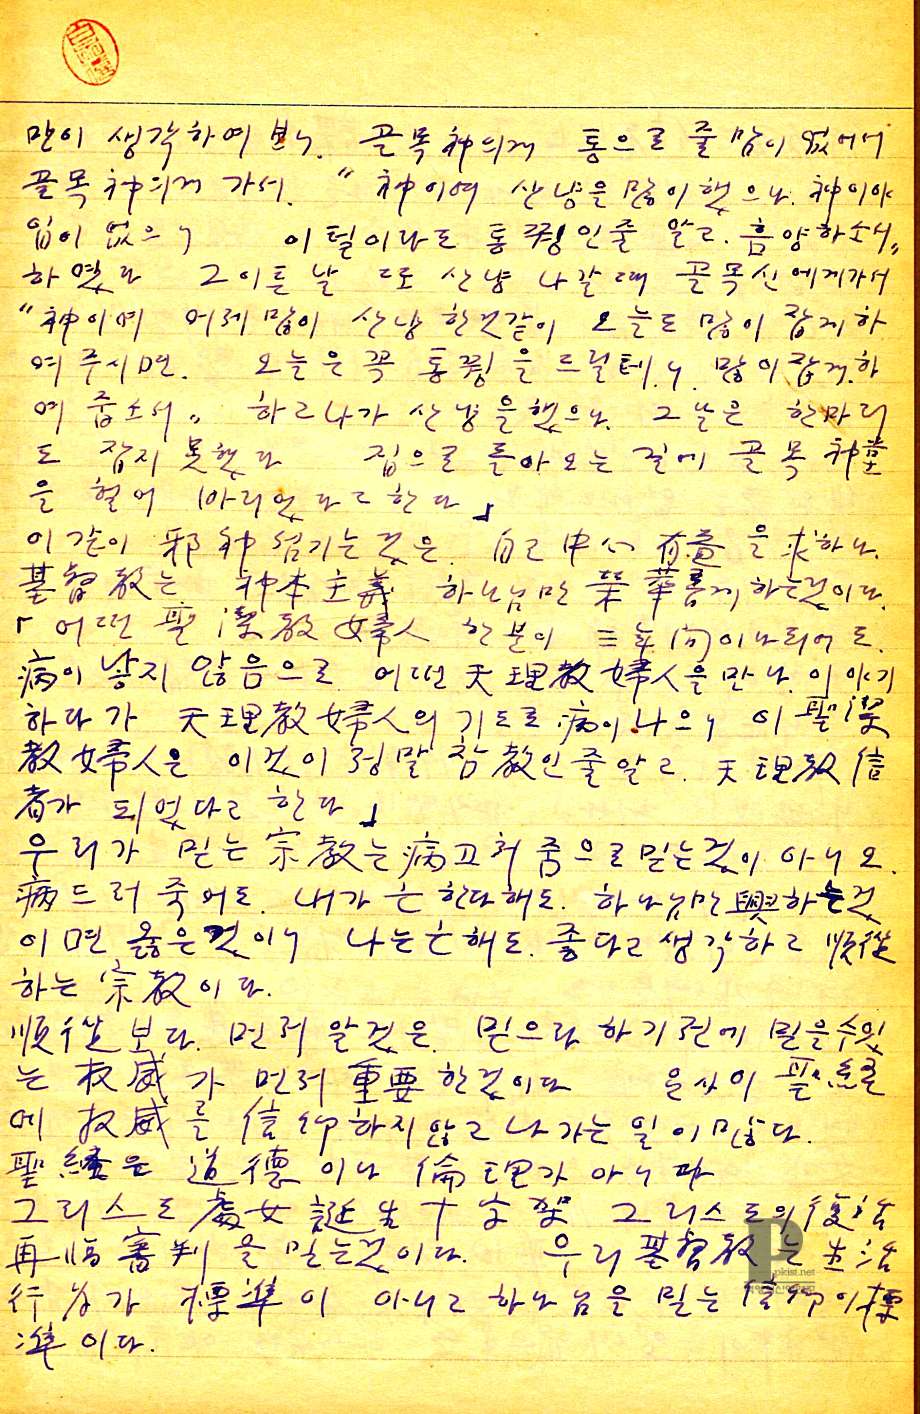 만이 생각하여 보니. 골목神의게 통으로 줄 맘이 없어서
골목神의게 가서. “神이여 산냥을 많이 했으나. 神이야
입이 없으니 이 털이라도 통꿩인줄 알고. 흠양하소서„
하였다 그 이튼날 또 산냥 나갈때 골목신에게가서
“神이여 어제 많이 산냥 한것같이 오늘도 많이 잡게 하
여 주시면. 오늘은 꼭 통꿩을 드릴테니. 많이 잡게.하
여 줍소서„ 하고 나가 산냥을 했으나. 그날은 한마리
도 잡지 못했다 집으로 돌아오는 길에 골목神堂
을 헐어 버리였다고 한다」
이같이 邪神 섬기는것은. 自己中心 有益을 求하나.
基督敎는 神本主義 하나님만 榮華롭게 하는것이다.
「어떤 聖潔敎 女婦人 한분이 三年间이나 되어도.
病이 낳지 않음으로 어떤 天理敎 婦人을 만나. 이야기
하다가 天理敎 婦人의 기도로 病이 나으니 이 聖潔
敎 婦人은 이것이 정말 참 敎인줄 알고. 天理敎 信
者가 되였다고 한다」
우리가 믿는 宗敎는 病고쳐 줌으로 믿는것이 아니요.
病드러 죽어도. 내가 亡한다해도. 하나님만 興하는것
이면 옳은것이니 나는 亡해도. 좋다고 생각하고 順從
하는 宗敎이다.
順從보다. 먼저 알것은. 믿으라 하기전에 믿을수있
는 权威가 먼저 重要한것이다 은사이 聖經
에 权威를 信仰하지 않고 나가는 일이 많다.
聖經은 道德이나 倫理가 아니다
그리스도 處女誕生 十字架 그리스도의 復活
再臨 審判을 믿는것이다. 우리 基督敎는 生活
行为가 標準이 아니고 하나님을 믿는 信仰이 標
準이다.